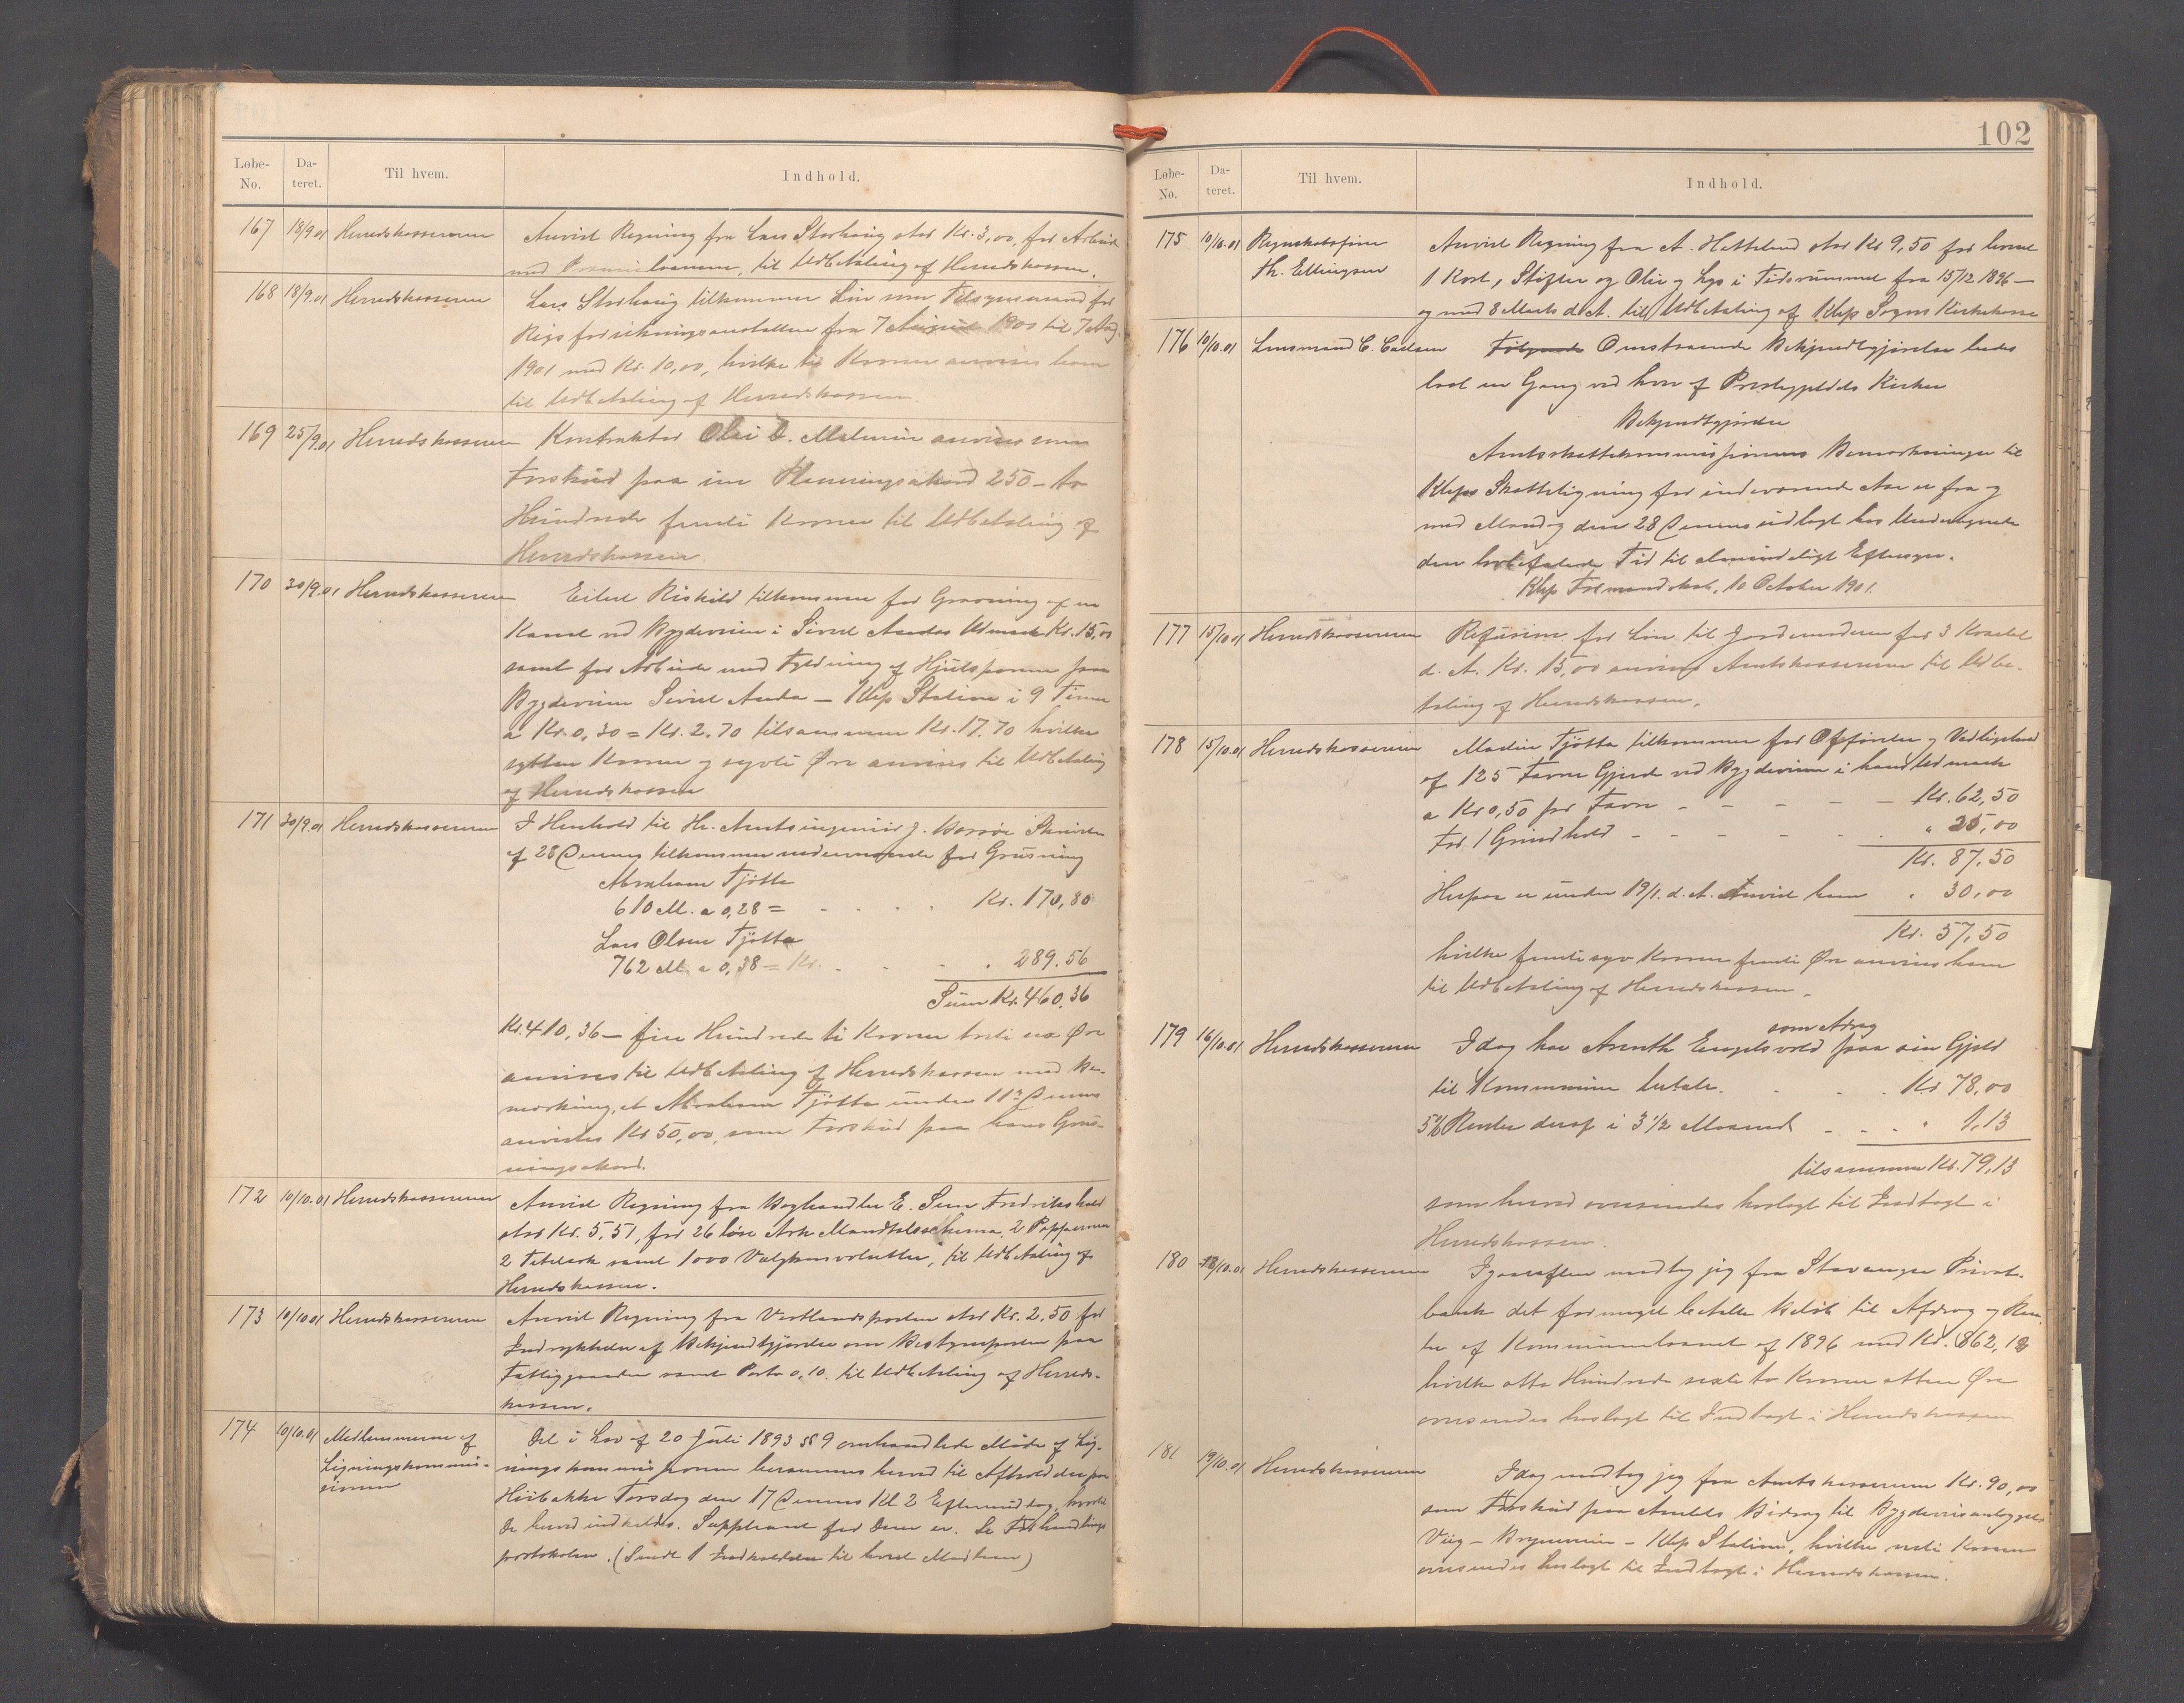 Løbe-No. Da-teret. Til hvem. Indhold.
167 18/9.01 Herredskassereren Anvist Regning fra Lars Storhaug stor Kr. 3,00, for Arbeide
med til Udbetaling af Herredskassen.
168 18/9.01 Herredskassereren Lars Storhaug tilkommer Løn som Tilsynsmand for
Rigsforsikringsanstalten fra 7 August 1900 til 7 Aug.
1901 med Kr. 10,00, hvilke ti Kroner anvises ham
til Udbetaling af Herredskassen.
169 25/9.01 Herredskassereren Kontraktør Olai D. Malmin anvises som
Forskud paa sin Planeringsakord 250 – to
Hundrede femti Kroner til Udbetaling af
Herredskassen.
170 30/9.01 Herredskassereren Eilert Riskild tilkommer for Gravning af en
Kanal ved Bygdeveien i Sivert Andas Udmark Kr. 15,00
samt for Arbeide med Fyldning af Hjulsporene paa
Bygdeveien Sivert Anda – Klep Station i 9 Timer
a Kr. 0,30 = Kr. 2.70 tilsammen Kr. 17.70 hvilke
sytten Kroner og sytti Øre anvises til Udbetaling
af Herredskassen
171 30/9.01 Herredskassereren I Henhold til Hr. Amtsingeniør J. Skrivelse
af 28 Dennes tilkommer nedennævnte for Grusning
Abraham Tjøtta
610 M. a 0,28 = - - - - Kr. 170,80
Lars Olsen Tjøtta
762 M. a 0,38 = Kr. - - - 289.56
Sum Kr. 460,36
Kr. 410,36 – fire Hundrede ti Kroner treti sex Øre
anvises til Udbetaling af Herredskassen med Be-
mærkning, at Abraham Tjøtta under 11te Dennes
anvistes Kr 50,00, som Forskud paa hans Grus-
ningsakord.
172 10/10.01 Herredskassereren Anvist Regning fra Boghandler E. Sem Fredrikshald
stor Kr. 5,51, for 26 løse Ark Mandtalsschema, 2 Papperme
2 Titelark samt 1000 Valgkonvolutter, til Udbetaling af
Herredskassen.
173 10/10.01 Herredskassereren Anvist Regning fra Vestlandsposten stor Kr. 2.50 for
Indrykkelse af Bekjendtgjørelse om Bestyrerposten paa
Fattiggaarden samt Porto 0,10. til Udbetaling af Herreds-
kassen.
174 10/10.01 Medlemmerne af
Ligningskommis-
sionen
Det i Lov af 20 Juli 1893 § 9 omhandlede Møde af Lig-
ningskommissionen berammes herved til Afholdelse paa
Torsdag den 17 Dennes Kl 2 Eftermiddag, hvortil
De herved indkaldes. Suppleant for Dem er. Se Forhandlings
protokolen. (Sendt 1 Indkaldelse til hvert Medlem)
102
Løbe-No. Da-teret. Til hvem. Indhold.
175 10/10.01 Regnskabsfører
Th. Ellingsen
Anvist Regning fra A. Hetteland stor Kr 9,50 for leveret
1 Kost, Stifter og Olie og Lys i Tidsrummet fra 15/12 1896 –
og med 8 Marts d. A. til Udbetaling af Klep Sogns Kirkekasse
176 10/10.01 Lensmand C. Carlsen Følgende Omstaaende Bekjendtgjørelse bedes
læst en Gang ved hver af Præstegjeldets Kirker
Bekjendtgjørelse
Amtsskattekommissionens Bemærkninger til
Kleps Skatteligning for indeværende Aar er fra og
med Mandag den 28 Dennes udlagt hos Undertegnede
den lovbefalede Tid til almindeligt Eftersyn.
Klep Formandskab, 10 October 1901.
177 15/10.01 Herredskassereren Refusion for Løn til Jordemoderen for 3 Kvartal
d. A. Kr. 15,00 anvises Amtskassereren til Udbe-
taling af Herredskassen.
178 15/10.01 Herredskassereren Tjøtta tilkommer for Opførelse og Vedligehold
af 125 Favne Gjerd ved Bygdeveien i hans Udmark
a Kr 0,50 pr Favn - - - - - Kr. 62,50
For 1 Grindhold - - - - - - " 25,00
Kr. 87,50
Herpaa er under 19/1. d. A. Anvist ham " 30,00
Kr. 57,50
hvilke femti syv Kroner femti Øre anvises ham
til Udbetaling af Herredskassen.
179 16/10.01 Herredskassereren Idag har Arenth Engelsvold som Afdrag paa sin Gjeld
til Kommunen betalt. - - - Kr 78,00
5% Renter deraf i 3 1/2 Maaned - - - " 1,13
tilsammen Kr. 79,13
som herved oversendes hoslagt til Indtægt i
Herredskassen.
180 18/10.01 Herredskassereren Igaaraften modtog jeg fra Stavanger Privat-
bank det formeget betalte Beløb til Afdrag og Ren-
ter af Kommunelaanet af 1896 med Kr. 862,18
hvilke otte Hundrede sexti to Kroner atten Øre
oversendes hoslagt til Indtægt i Herredskassen
181 19/10.01 Herredskassereren Idag modtog jeg fra Amtskassereren Kr. 90,00
som Forskud paa Amtets Bidrag til Bygdeveisanlægget
Viig – Bryneveien – Klep Station, hvilke niti Kroner
oversendes hoslagt til Indtægt i Herredskassen.